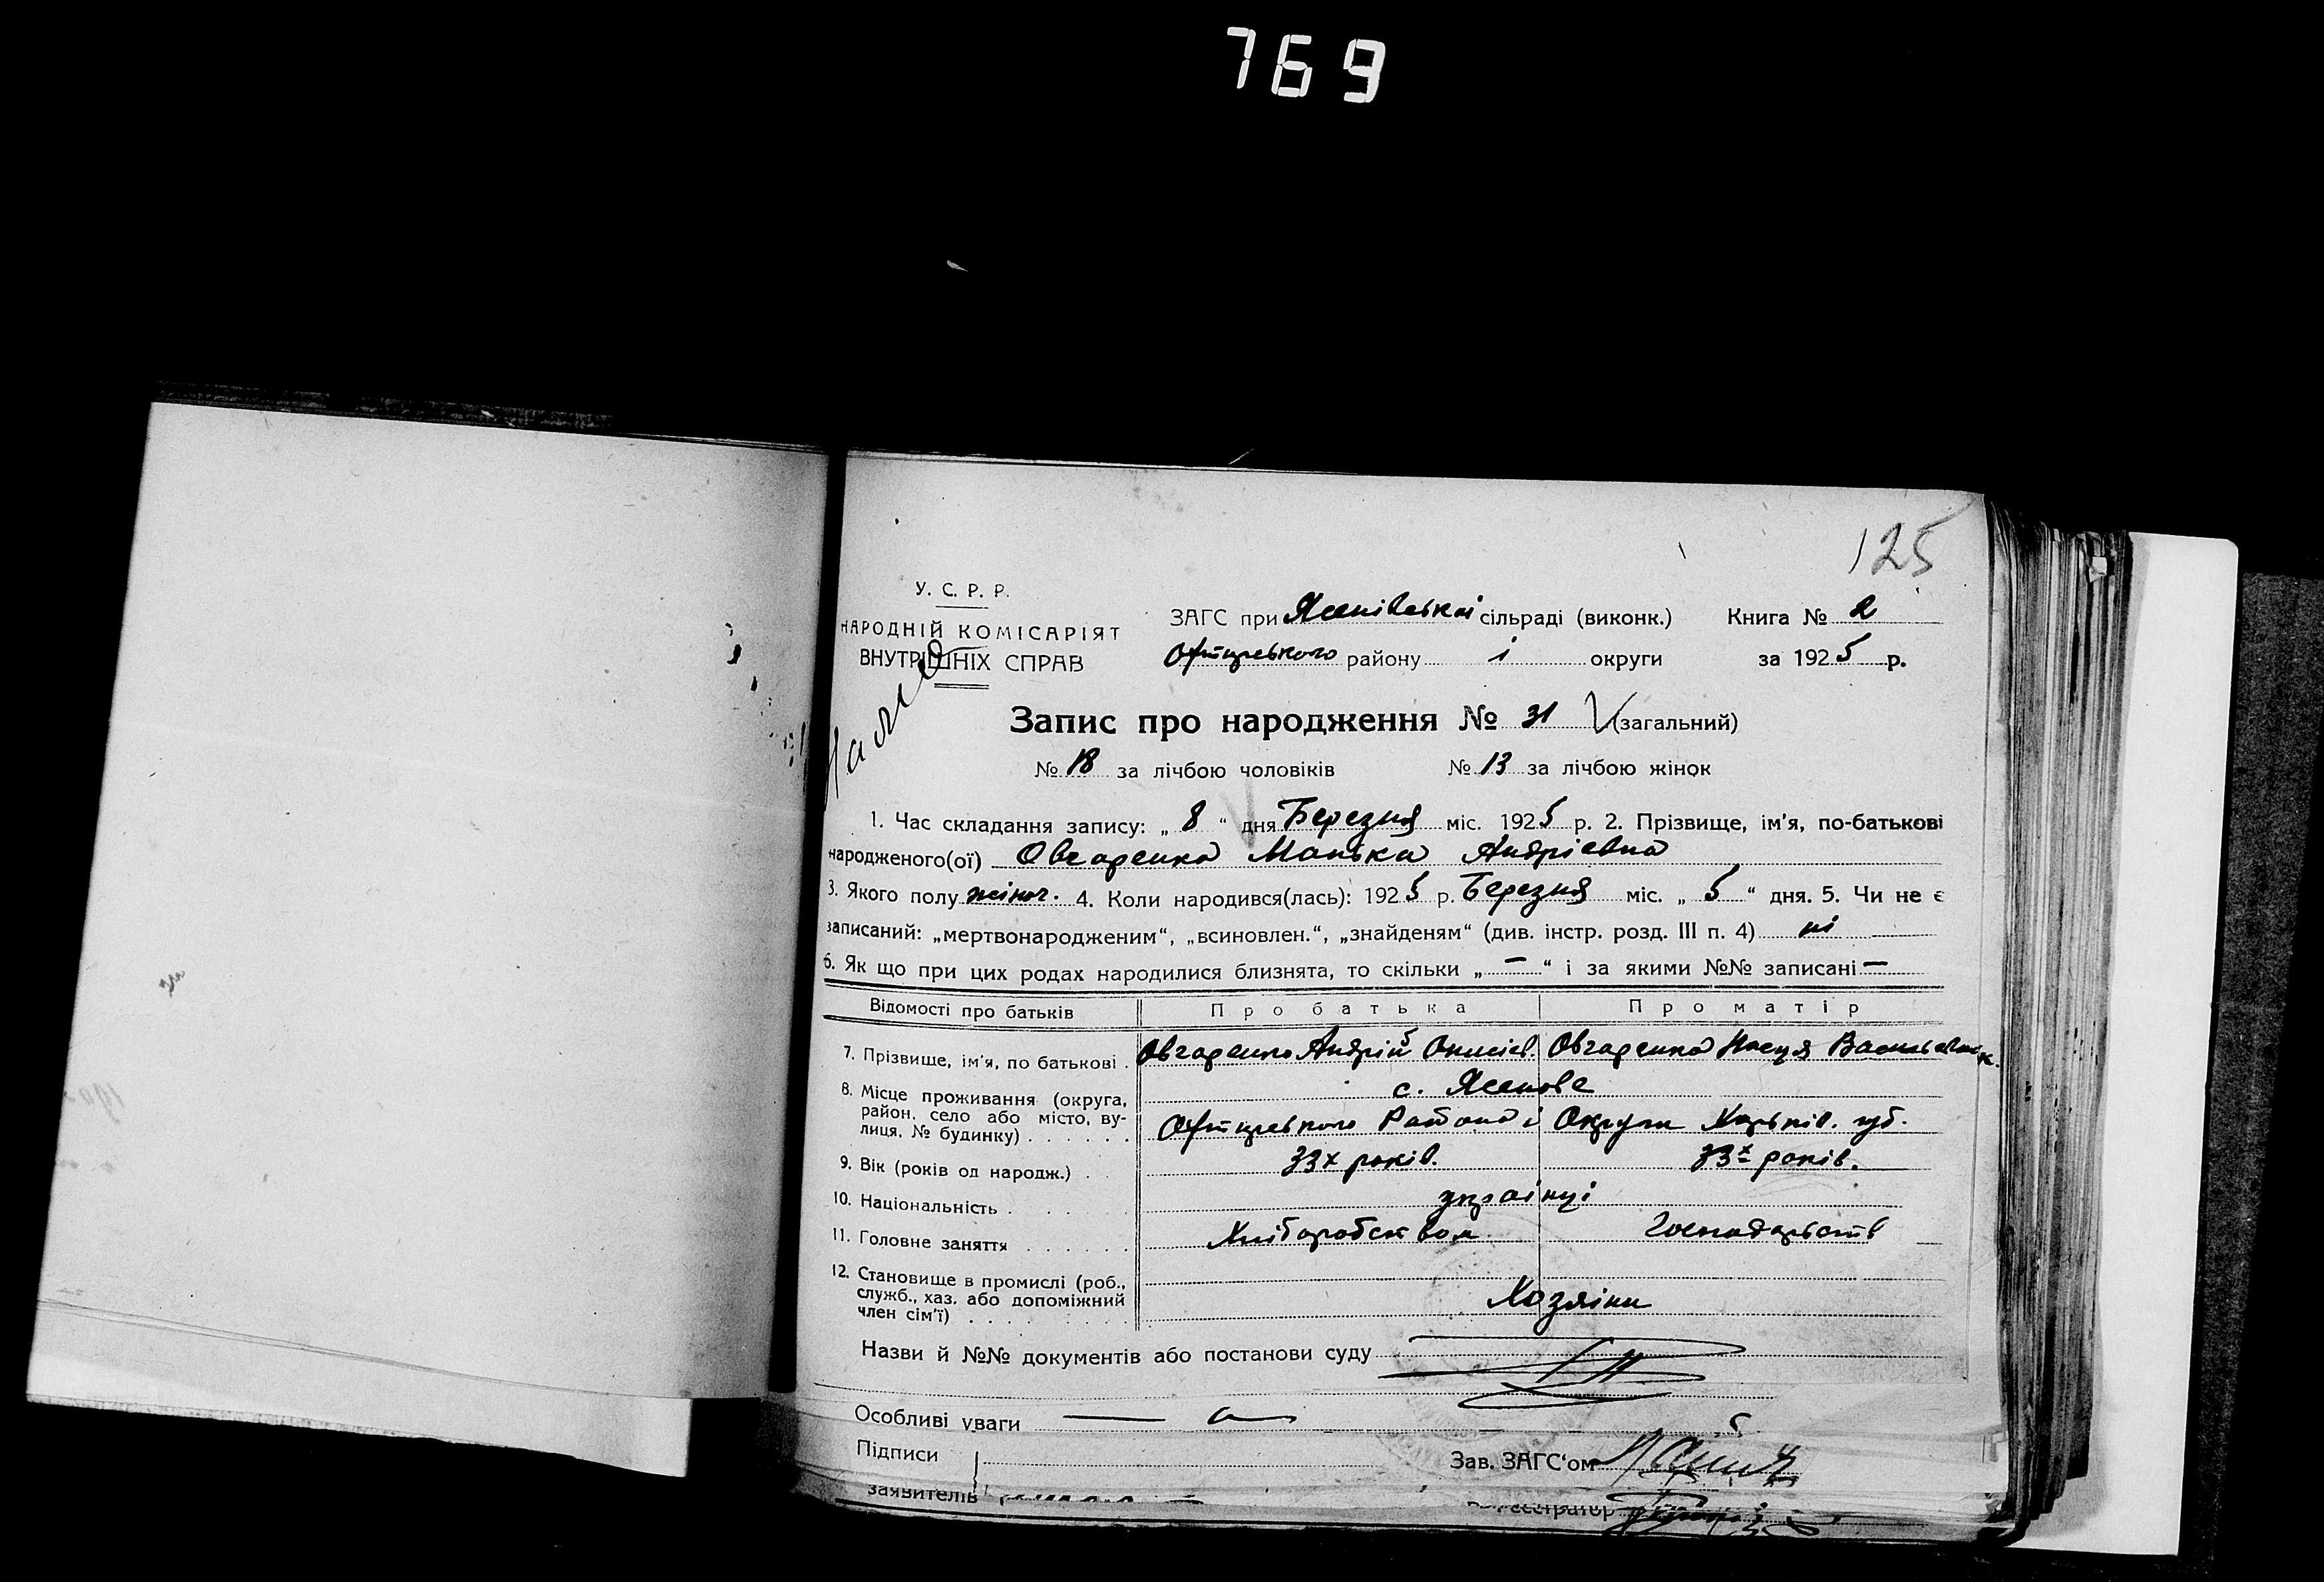 769
125
У. С. Р. Р.
НАРОДНІЙ КОМІСАРІЯТ
ВНУТРІШНІХ СПРАВ
ЗАГС при Ясенівській сільраді (виконк.) Книга № 2
району і округи за 1925 р.
Запис про народження № 31 (загальний)
№ 18 за лічбою чоловіків № 13 за лічбою жінок
1. Час складання запису: „ 8 “ дня Березня міс. 1925 р. 2. Прізвище, ім'я, по-батькові
народженого(ої) Овчаренко Манька Андрієвна
3. Якого полу жіноч. 4. Коли народився(лась): 1925 р. Березня міс. „ 5 “ дня. 5. Чи не є
записаний: „мертвонародженим“, „всиновлен.“, „знайденям“ (див. інстр. розд. III п. 4) ні
6. Як що при цих родах народилися близнята, то скільки „ — “ і за якими №№ записані —
Відомості про батьків Про батька Про матір
7. Прізвище, ім'я, по батькові . Овчаренко Андрій Овчаренко Настя
8. Місце проживання (округа, район, село або місто, вулиця, № будинку) . . . . . .
с. Ясенове
Району і Округи Харьків. губ.
9. Вік (років од народж.) . . 33х років. 33х років.
10. Національність . . . . українці
11. Головне заняття . . . . . . Хліборобством
12. Становище в промислі (роб., служб., хаз. або допоміжний член сім'ї) . . . .
Хозяіни
Назви й №№ документів або постанови суду
Особливі уваги
Підписи
Зав. ЗАГС'ом
заявителів